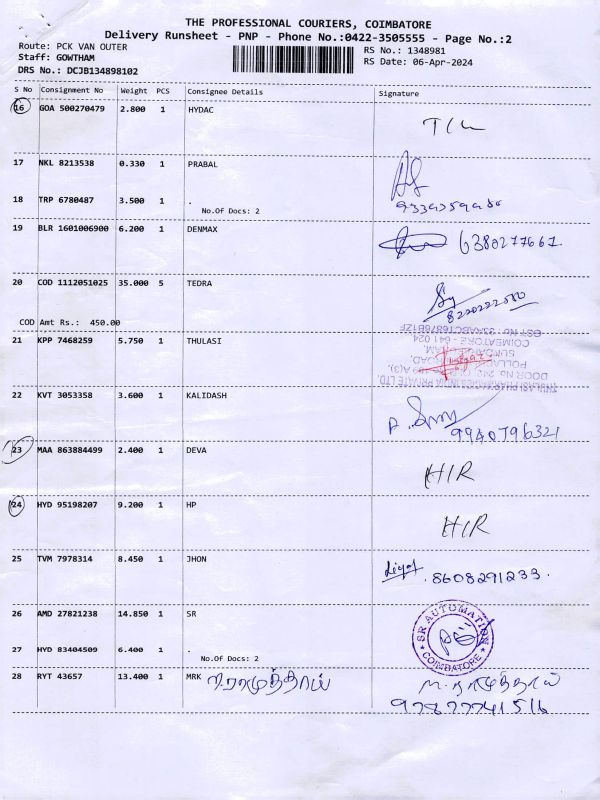 THE PROFESSIONAL COURIERS, COIMBATORE
Delivery Runsheet - PNP - Phone No.:0422-3505555 - Page No.:2
Route: PCK VAN OUTER
RS No.: 1348981
Staff: GOWTHAM
RS Date: 06-Apr-2024
DRS No.: DCJB134898102
S No Consignment No Weight PCS Consignee Details Signature
16 GOA 500270479 2.800 1 HYDAC
17 NKL 8213538 0.330 1 PRABAL
18 TRP 6780487 3.500 1 .
No.Of Docs: 2
19 BLR 1601006900 6.200 1 DENMAX 6380277667.
20 COD 1112051025 35.000 5 TEDRA
COD Amt Rs.: 450.00
GST No : 33AABCT6876B1ZF
COIMBATORE - 641 024
21 KPP 7468259 5.750 1 THULASI
22 KVT 3053358 3.600 1 KALIDASH
9940796321
23 MAA 863884499 2.400 1 DEVA H/R
24 HYD 95198207 9.200 1 HP H/R
25 TVM 7978314 8.450 1 JHON 8608291233.
26 AMD 27821238 14.850 1 SR
SR AUTOMATION
COIMBATORE
27 HYD 83404509 6.400 1 .
No.Of Docs: 2
28 RYT 43657 13.400 1 MRK